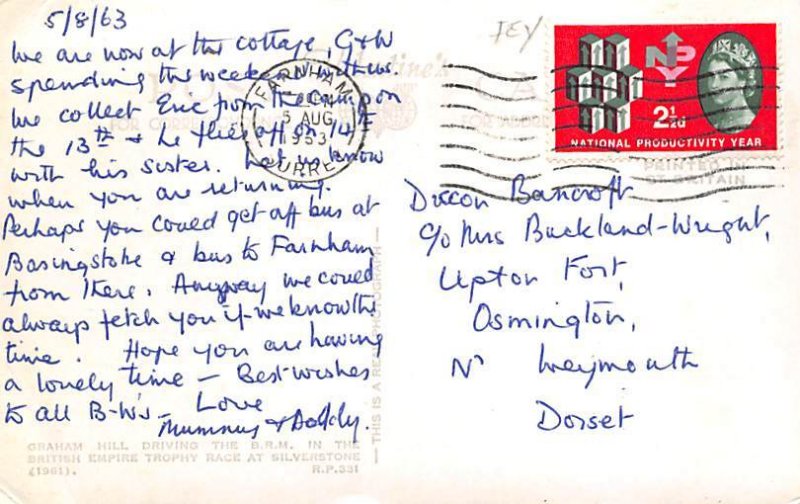 5/8/63
We are now at the cottage, G&W
spending the weekend with us.
We collect Eric from the camp on
the 13th & he flies off on 14th
with his sister. Let us know
when you are returning.
Perhaps you could get off bus at
Basingstoke & bus to Farnham
from there. Anyway we could
always fetch you if we know the
time. Hope you are having
a lovely time — Best wishes
to all B-W's — Love
Mummy & Daddy.
GRAHAM HILL DRIVING THE B.R.M. IN THE
BRITISH EMPIRE TROPHY RACE AT SILVERSTONE
(1961). R.P.331
THIS IS A REAL PHOTOGRAPH
FARNHAM
5 AUG
1963
SURREY
NPY
2½d
NATIONAL PRODUCTIVITY YEAR
PRINTED IN
GT BRITAIN
Bancroft
c/o Mrs Buckland-Wright,
Upton Fort,
Osmington,
Nr Weymouth
Dorset